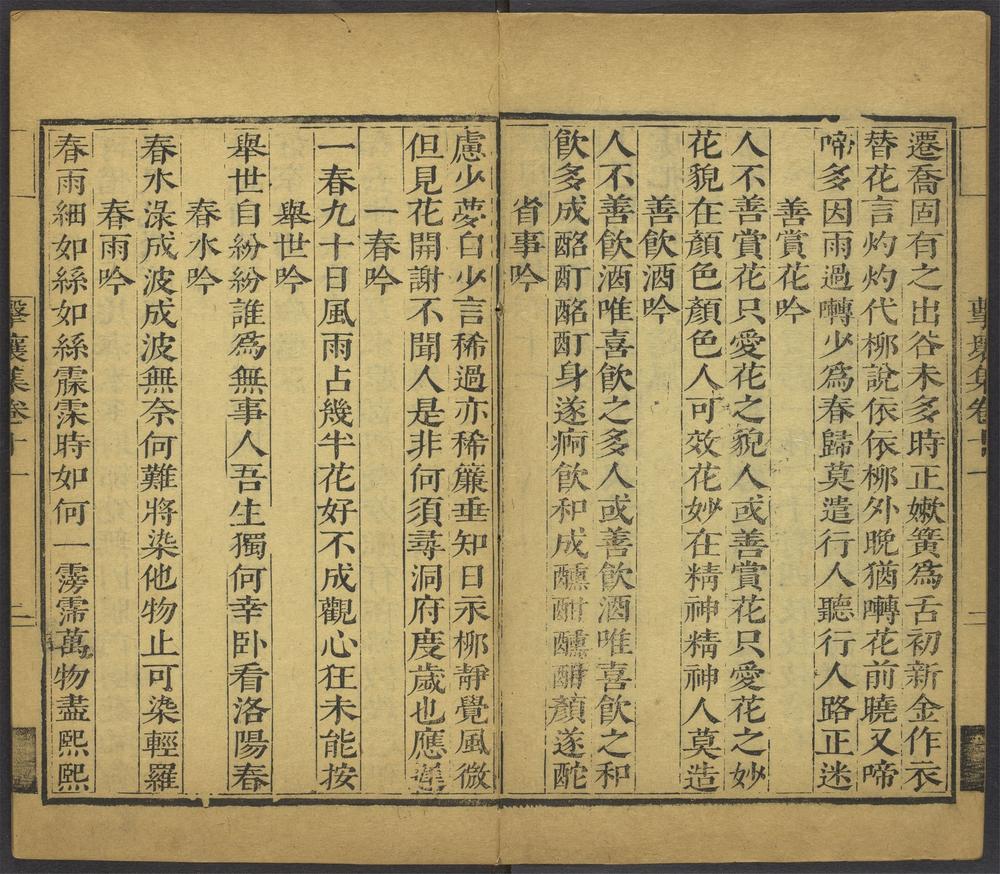 遷喬固有之出谷未多時正嫩簧為舌初新金作衣
替花言灼灼代柳說依依柳外晚猶囀花前曉又啼
啼多因雨過囀少為春歸莫遣行人聽行人路正迷
善賞花吟
人不善賞花只愛花之貌人或善賞花只愛花之妙
花貌在顏色顏色人可效花妙在精神精神人莫造
善飲酒吟
人不善飲酒唯喜飲之多人或善飲酒唯喜飲之和
飲多成酩酊酩酊身遂痾飲和成醺酣醺酣顏遂酡
省事吟
慮少夢自少言稀過亦稀簾垂知日永柳靜覺風微
但見花開謝不聞人是非何須尋洞府度歲也應遲
一春吟
一春九十日風雨占幾半花好不成觀心狂未能按
舉世吟
舉世自紛紛誰為無事人吾生獨何幸卧看洛陽春
春水吟
春水淥成波成波無奈何難將染他物止可染輕羅
春雨吟
春雨細如絲如絲霡霂時如何一霶霈萬物盡熙熙
擊壤集卷十一
二